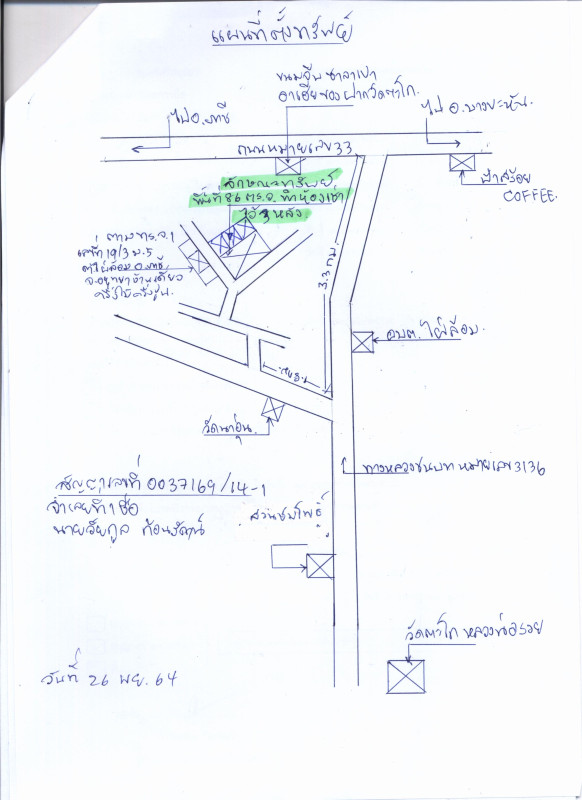 แผนที่ตั้งทรัพย์
ขนมจีบ ซาลาเปา
อาเฮียของฝากวัดตาโก
ไป อ.ภาชี
ไป อ.บางปะหัน
ถนนหมายเลข 33
ลักษณะทรัพย์
พื้นที่ 86 ตร.ว. ทำห้องเช่า
ไว้ 3 หลัง
ฟ้าสร้อย
COFFEE.
ตาม ทร.จ.1
เลขที่ 19/3 ม.5
ต.ไผ่ล้อม อ.ภาชี
จ.อยุธยา บ้านเดี่ยว
ครึ่งไม้ครึ่งปูน
3.3 กม
อบต. ไผ่ล้อม.
วัดนาอุ่น
ทางหลวงชนบท หมายเลข 3136
สัญญาเลขที่ 0037169/14-1
จำเลยที่ 1 ชื่อ
นายวัยกูล ก้อนรัตน์
สวนชมโพธิ์
วัดตาโก หลวงพ่อรวย
วันที่ 26 พย. 64